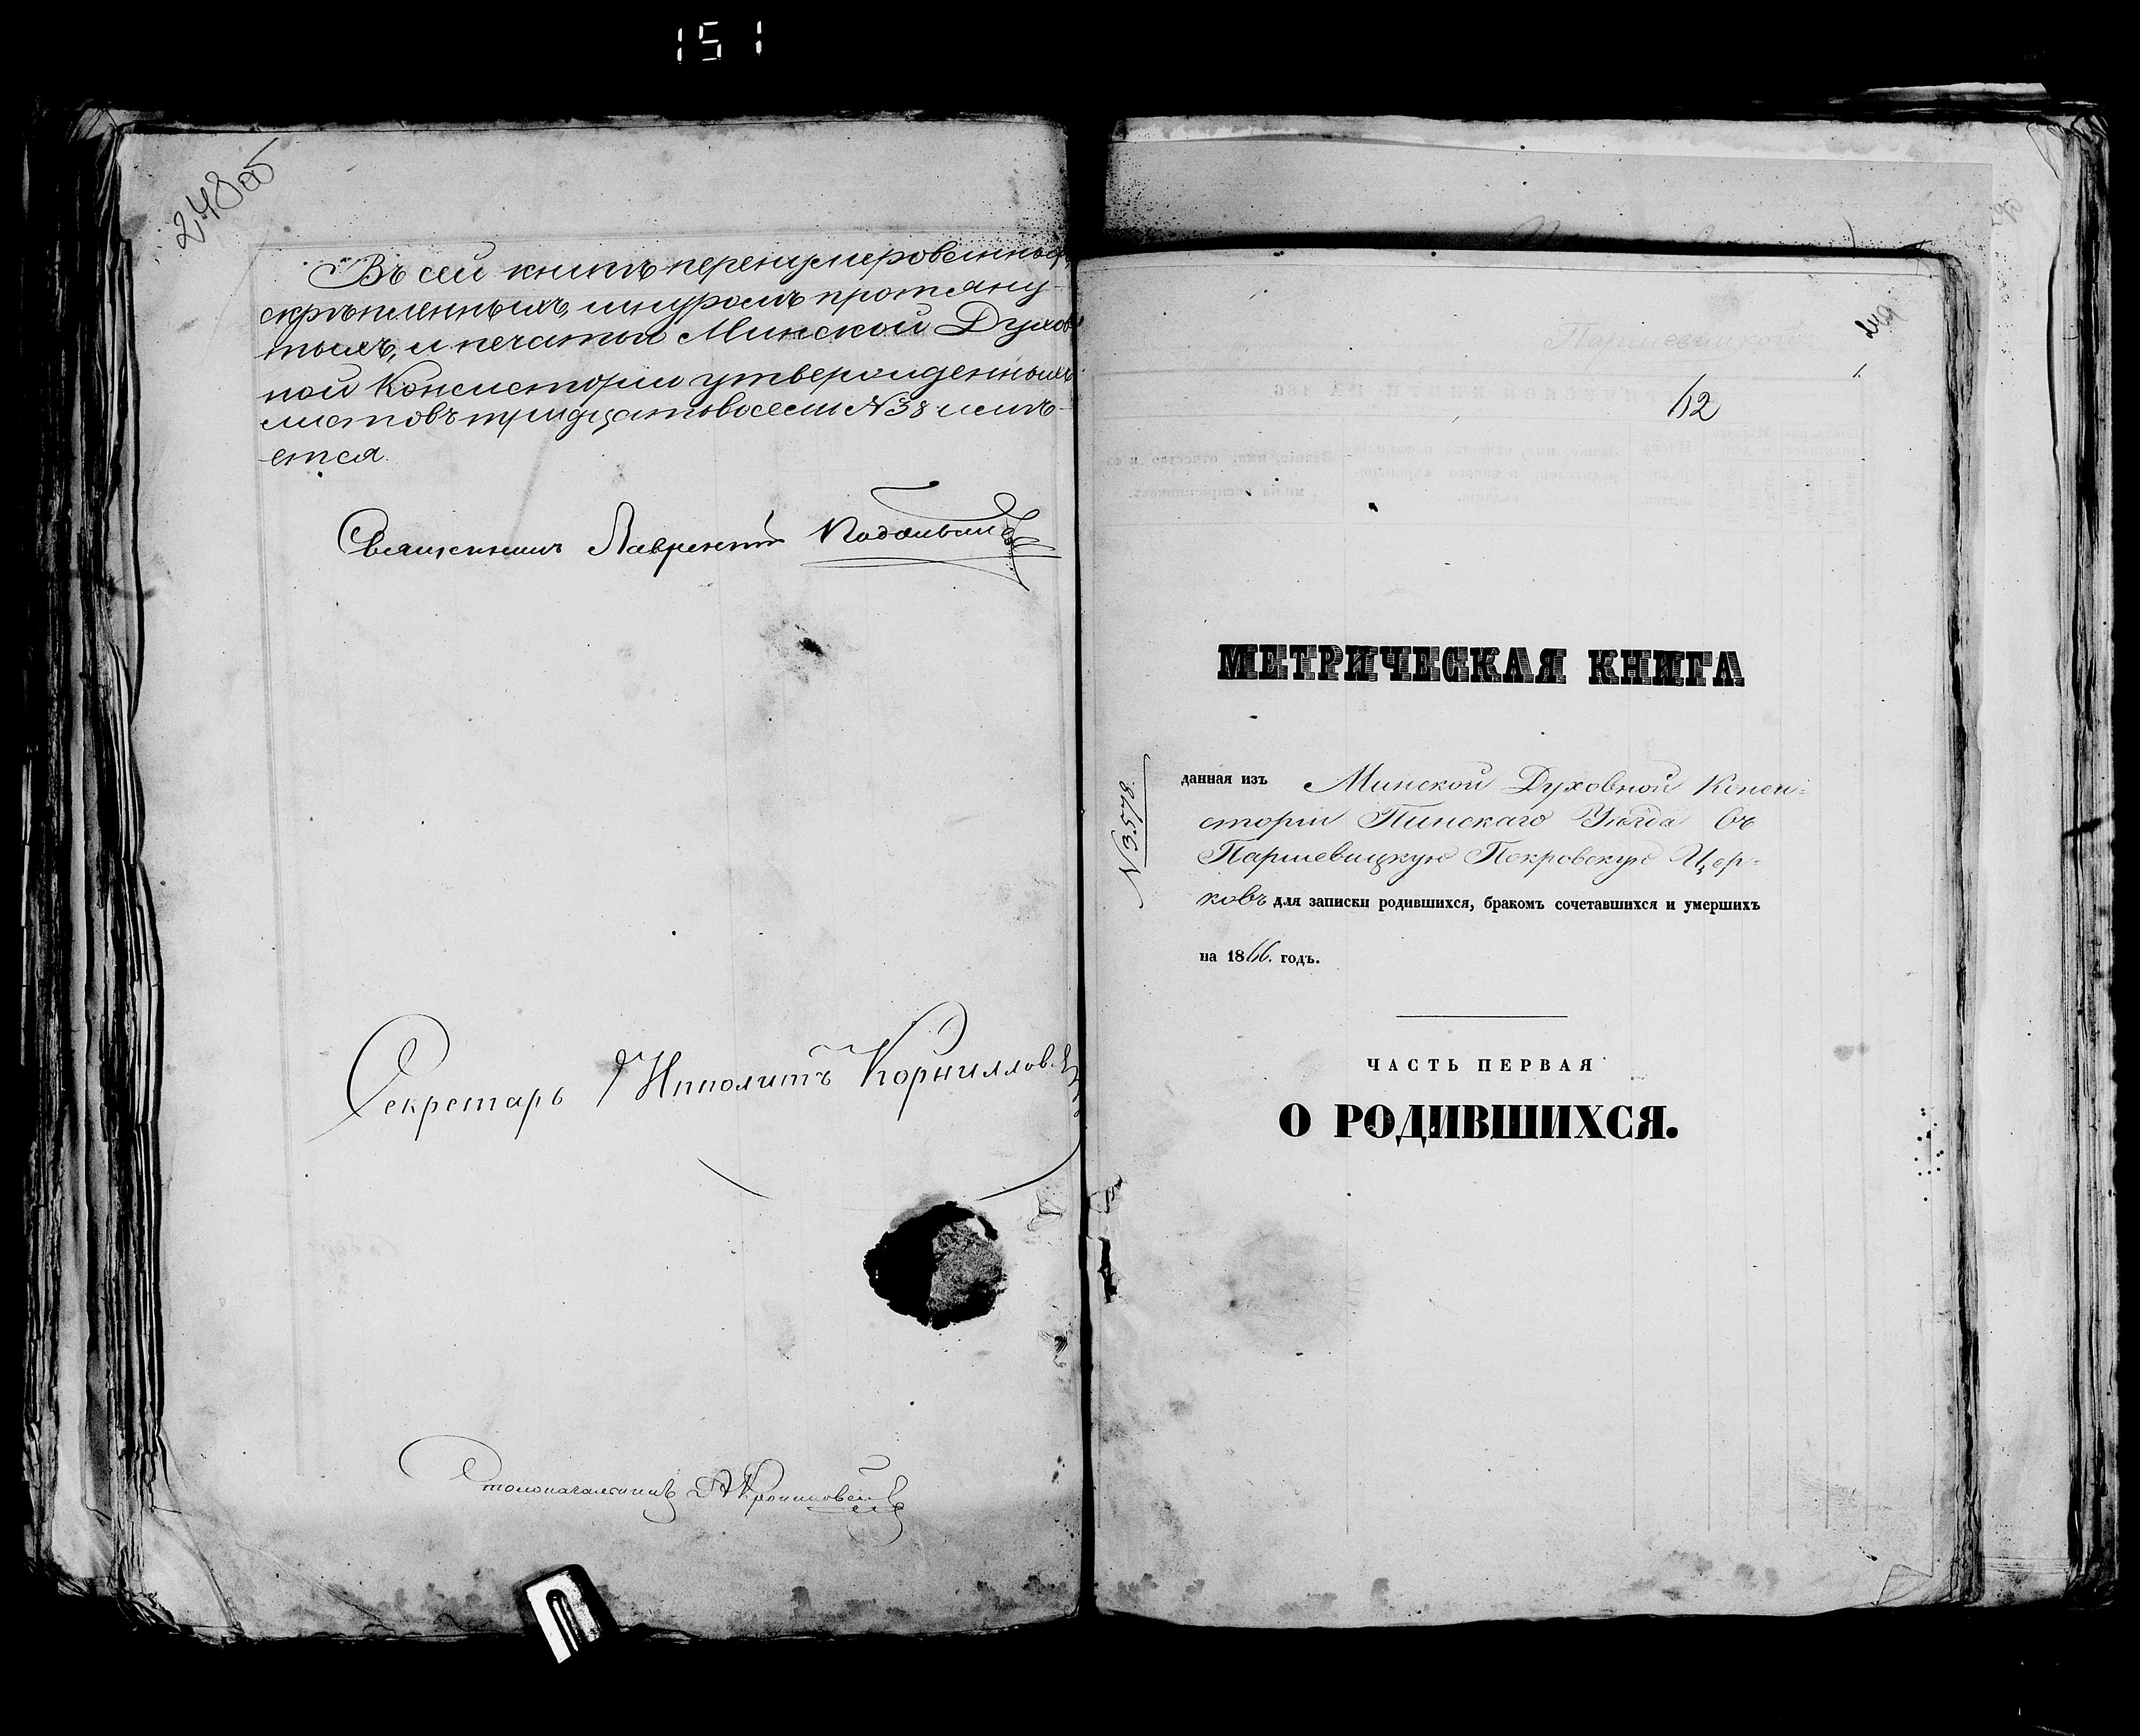 151
248 об
Въ сей книгѣ перенумерованныхъ,
скрѣпленныхъ, шнуромъ протяну-
тыхъ, и печатью Минской Духов
ной Консисторіи утвержденныхъ
листовъ тридцать восемь №38 имѣ-
ется.
Священникъ Лаврентій
Секретарь Ипполитъ
Столоначальникъ
249
1.
МЕТРИЧЕСКАЯ КНИГА
данная изъ Минской Духовной Конси-
сторіи Пинскаго Уѣзда въ
Паршевицкую Покровскую Цер-
ковь для записки родившихся, бракомъ сочетавшихся и умершихъ
на 1866. годъ.
N 3578.
ЧАСТЬ ПЕРВАЯ
О РОДИВШИХСЯ.